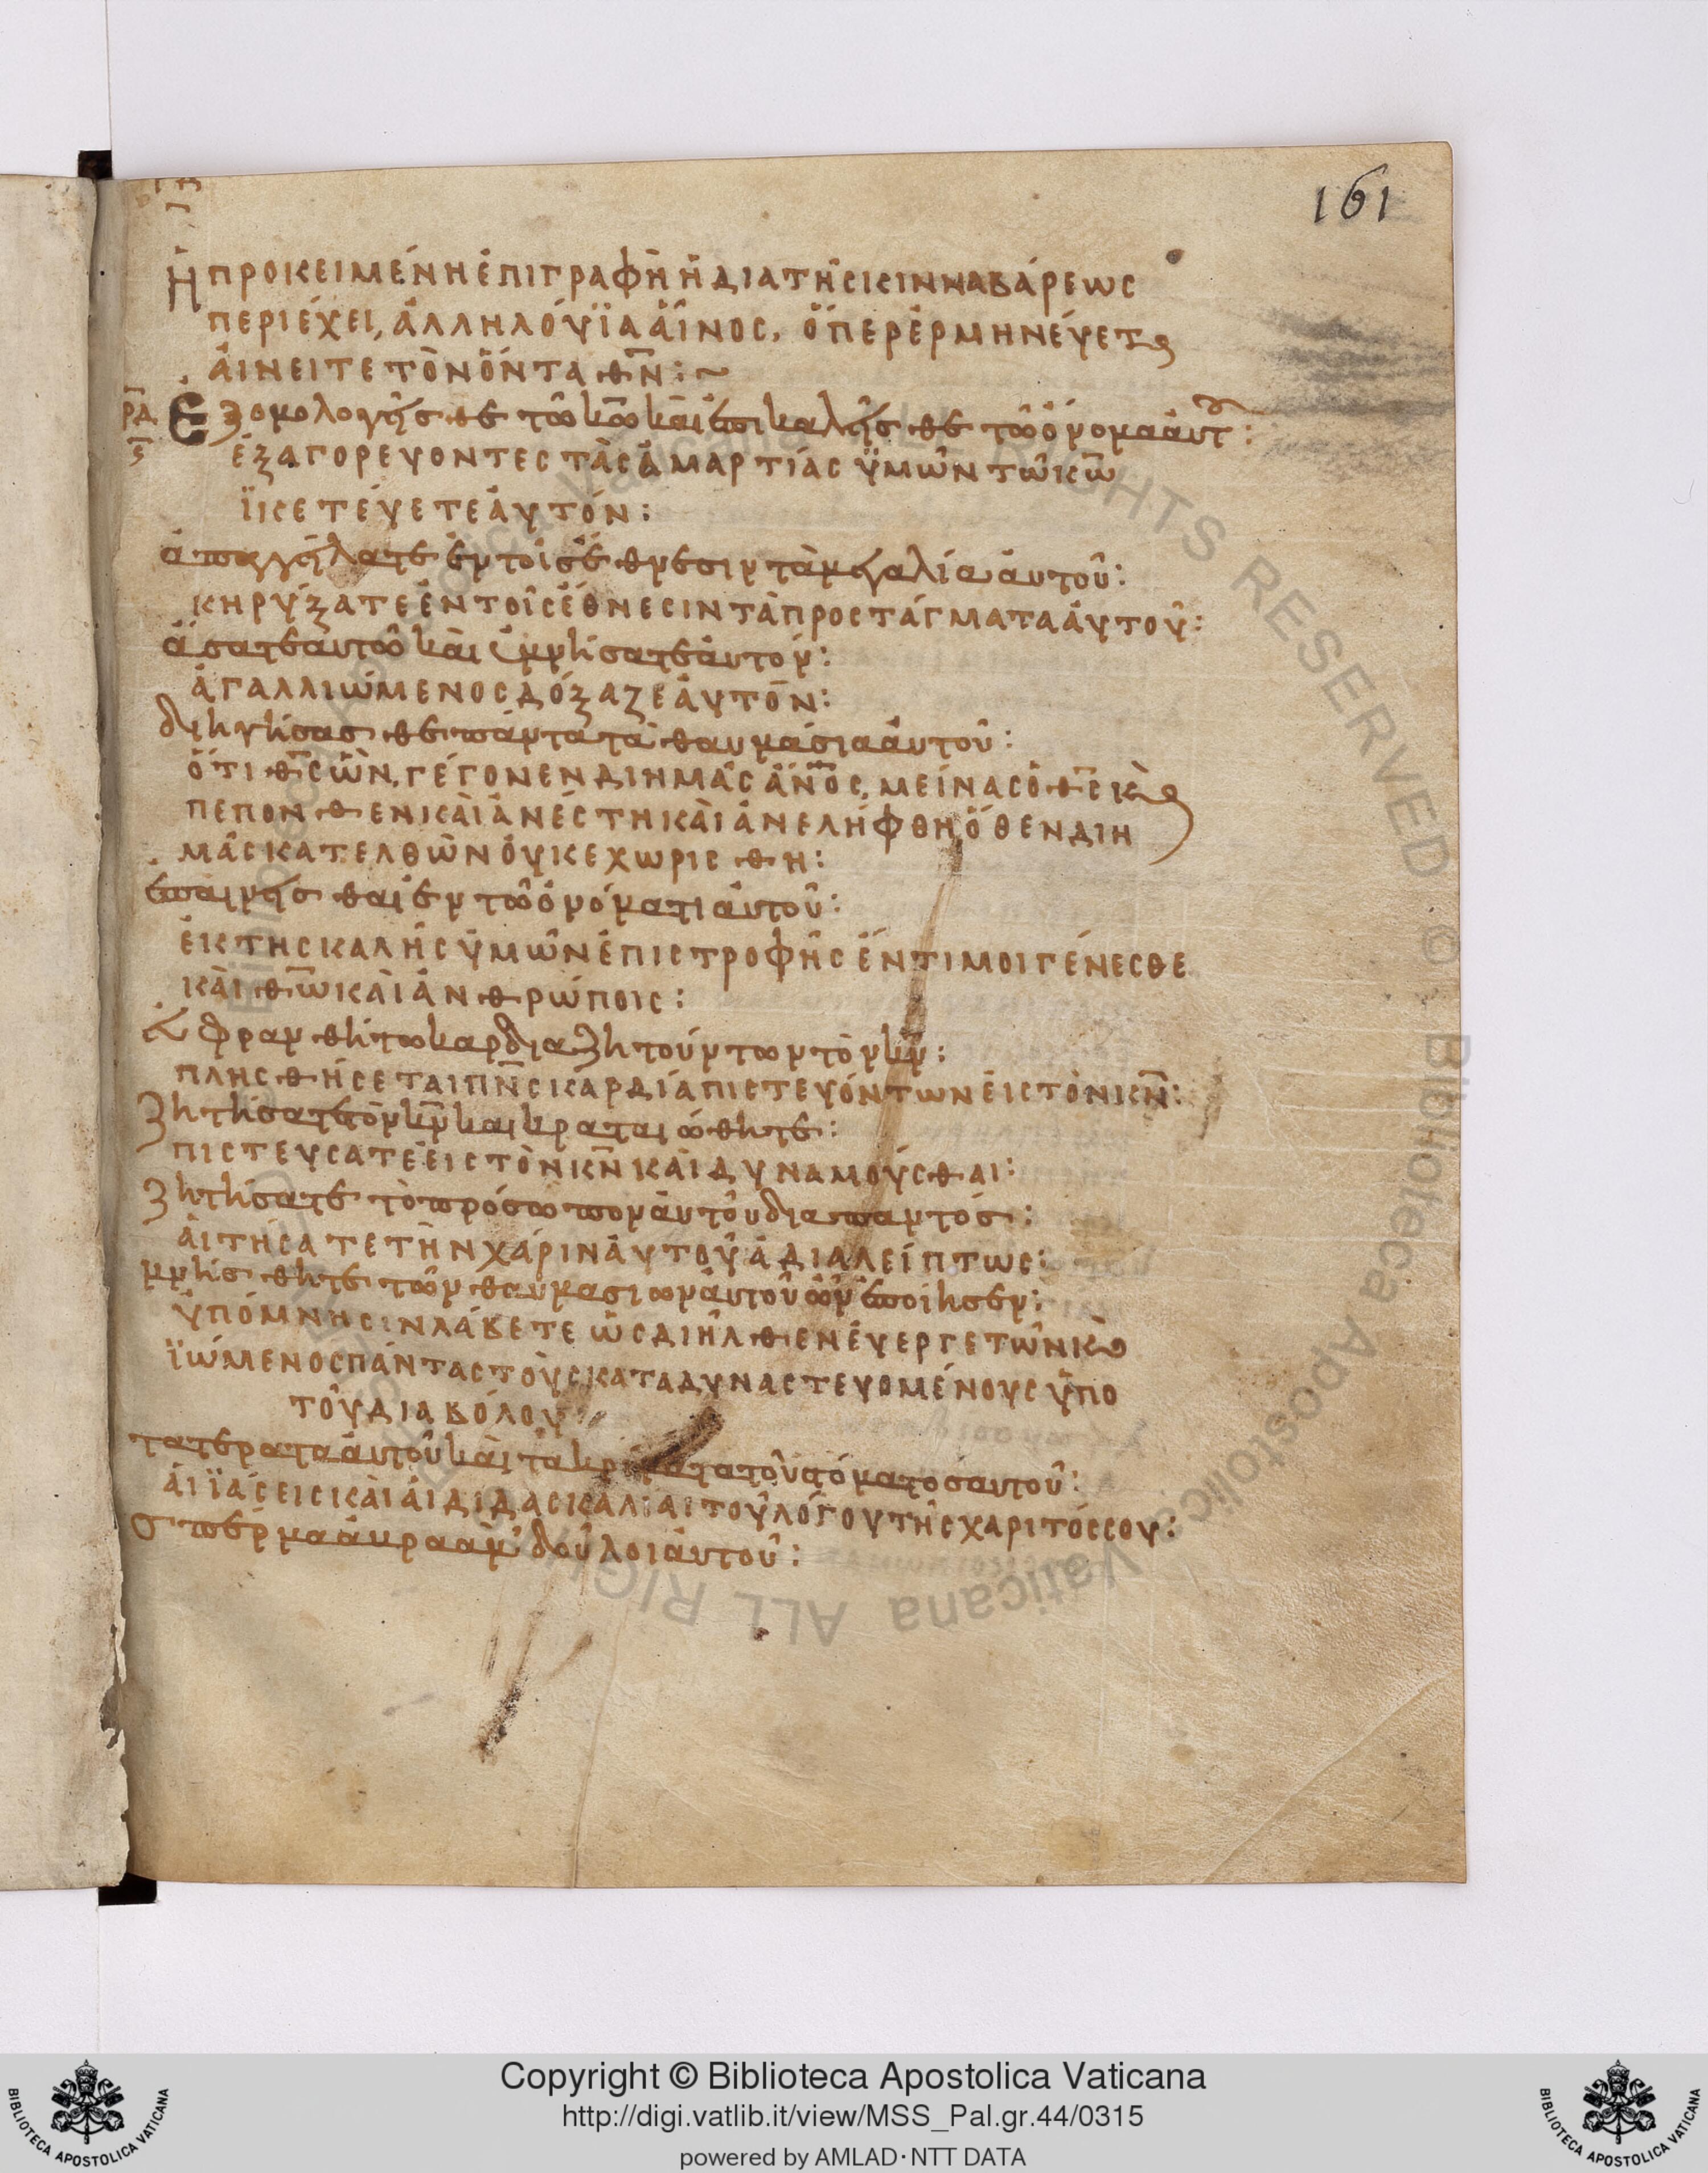 161
Ἡ προκειμένη ἐπιγραφὴ ἡ διὰ τῆς κινναβάρεως
περιέχει, ἀλληλούϊα ἄινος, ὅπερ ἑρμηνέυετ(αι)
ἀινεῖτε τὸν ὄντα θν̅ : ~
ρδ
ε̅
Ἐξομολογῆσθε τῶ κω̅ κὰι ἐπικαλῆσθε τῶ ὄνομα ἀυτ :
ἐξαγορευοντες τὰς ἁμαρτίας ὑμῶν τῶ κω̅
ϊκετέυετε ἀυτόν :
ἀπαγγήλατε ἐν τοῖς ἔθνεσιν τὰ μεγαλία ἀυτοῦ :
κηρύξατε ἐν τοῖς ἔθνεσιν τὰ προστάγματα ἀυτοῦ :
ἄσατε αυτῶ κὰι ὑμνήσατε ἀυτον :
ἀγαλλιώμενος δόξαζε ἀυτὸν :
διηγήσασθε πάντα τὰ θαυμάσια ἀυτοῦ :
ὅτι θς̅ ὢν, γέγονεν δι ημᾶς ἄνο̅ς, μείνας ὁ θς̅ κ(αὶ)
πεπονθεν κὰι ἀνέστη κὰι ἀνελήφθη, ὅθεν δι η
μᾶς κατελθὼν ὀυκ εχωρισθη :
ἐπαινῆσθαι ἐν τῶ ὀνόματι ἀυτοῦ :
ἐκ της καλῆς ὑμῶν ἐπιστροφῆς ἔντιμοι γένεσθε
κὰι θω̅ κὰι ἀνθρώποις :
Ἐυφρανθήτω καρδια ζητούντων τὸν κν̅ :
πλησθήσεται πν̅ς καρδία πιστευόντων ἐις τὸν κν̅ :
Ζητήσατε τὸν κν̅ και κραταιώθητε :
πιστευσατε ἐις τὸν κν̅ κὰι δυναμούσθαι :
Ζητήσατε τὸ πρόσωπον ἀυτοῦ δια παντός :
ἀιτήσατε τὴν χάριν ἀυτοῦ ἀδιαλείπτως :
μνήσθητε τῶν θαυμασιων ἀυτοῦ ὧν ἐποίησεν :
ὑπόμνησιν λάβετε ὡς διῆλθεν ἐυεργετῶν κ(αὶ)
ϊώμενος πάντας τοὺς καταδυναστευομένους ὑπο
τοῦ διαβόλου
τα τερατα ἀυτοῦ κὰι τὰ κρίματα τοῦ στόματος αυτοῦ :
ἁι ϊάσεις κὰι ἁι διδασκαλίαι τοῦ λόγου τῆς χαριτός σου :
σπέρμα ἀβρααμ δοῦλοι ἀυτοῦ :
Copyright © Biblioteca Apostolica Vaticana
http://digi.vatlib.it/view/MSS_Pal.gr.44/0315
powered by AMLAD·NTT DATA
BIBLIOTECA APOSTOLICA VATICANA
BIBLIOTECA APOSTOLICA VATICANA